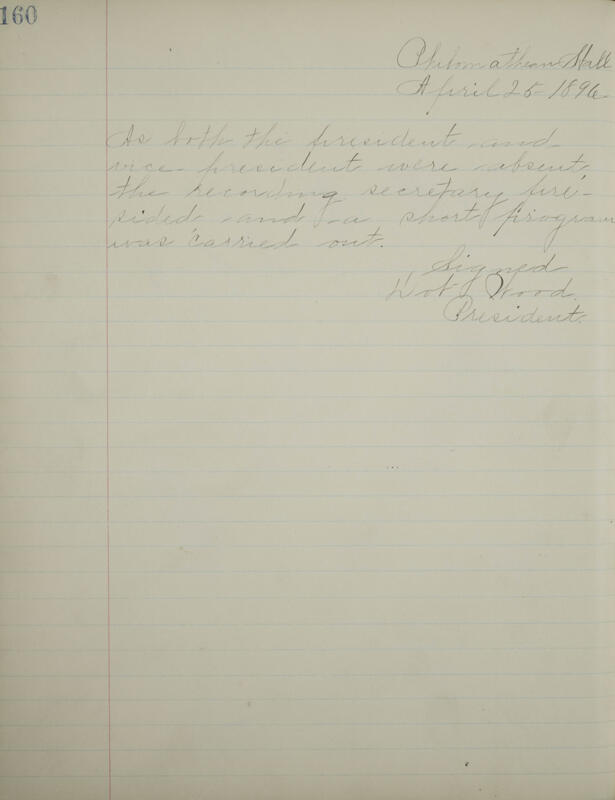 160
Philomathean Hall
April 25 - 1896
As both the president and
vice-president were absent,
the recording secretary pre-
sided and a short program
was carried out.
Signed
Dot Wood.
President.